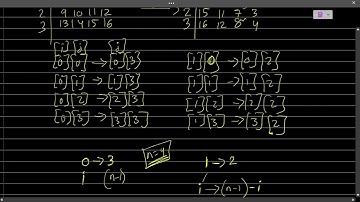 2 | 9 10 11 12 → 2 | 15 11 7 3
3 | 13 14 15 16 3 | 16 12 8 4
[i] [j] [j]
[0][0] → [0][3] [1][0] → [0][2]
[0][1] → [1][3] [1][1] → [1][2]
[0][2] → [2][3] [1][2] → [2][2]
[0][3] → [3][3] [1][3] → [3][2]
0 → 3 n=4 1 → 2
i (n-1) i → (n-1) - i